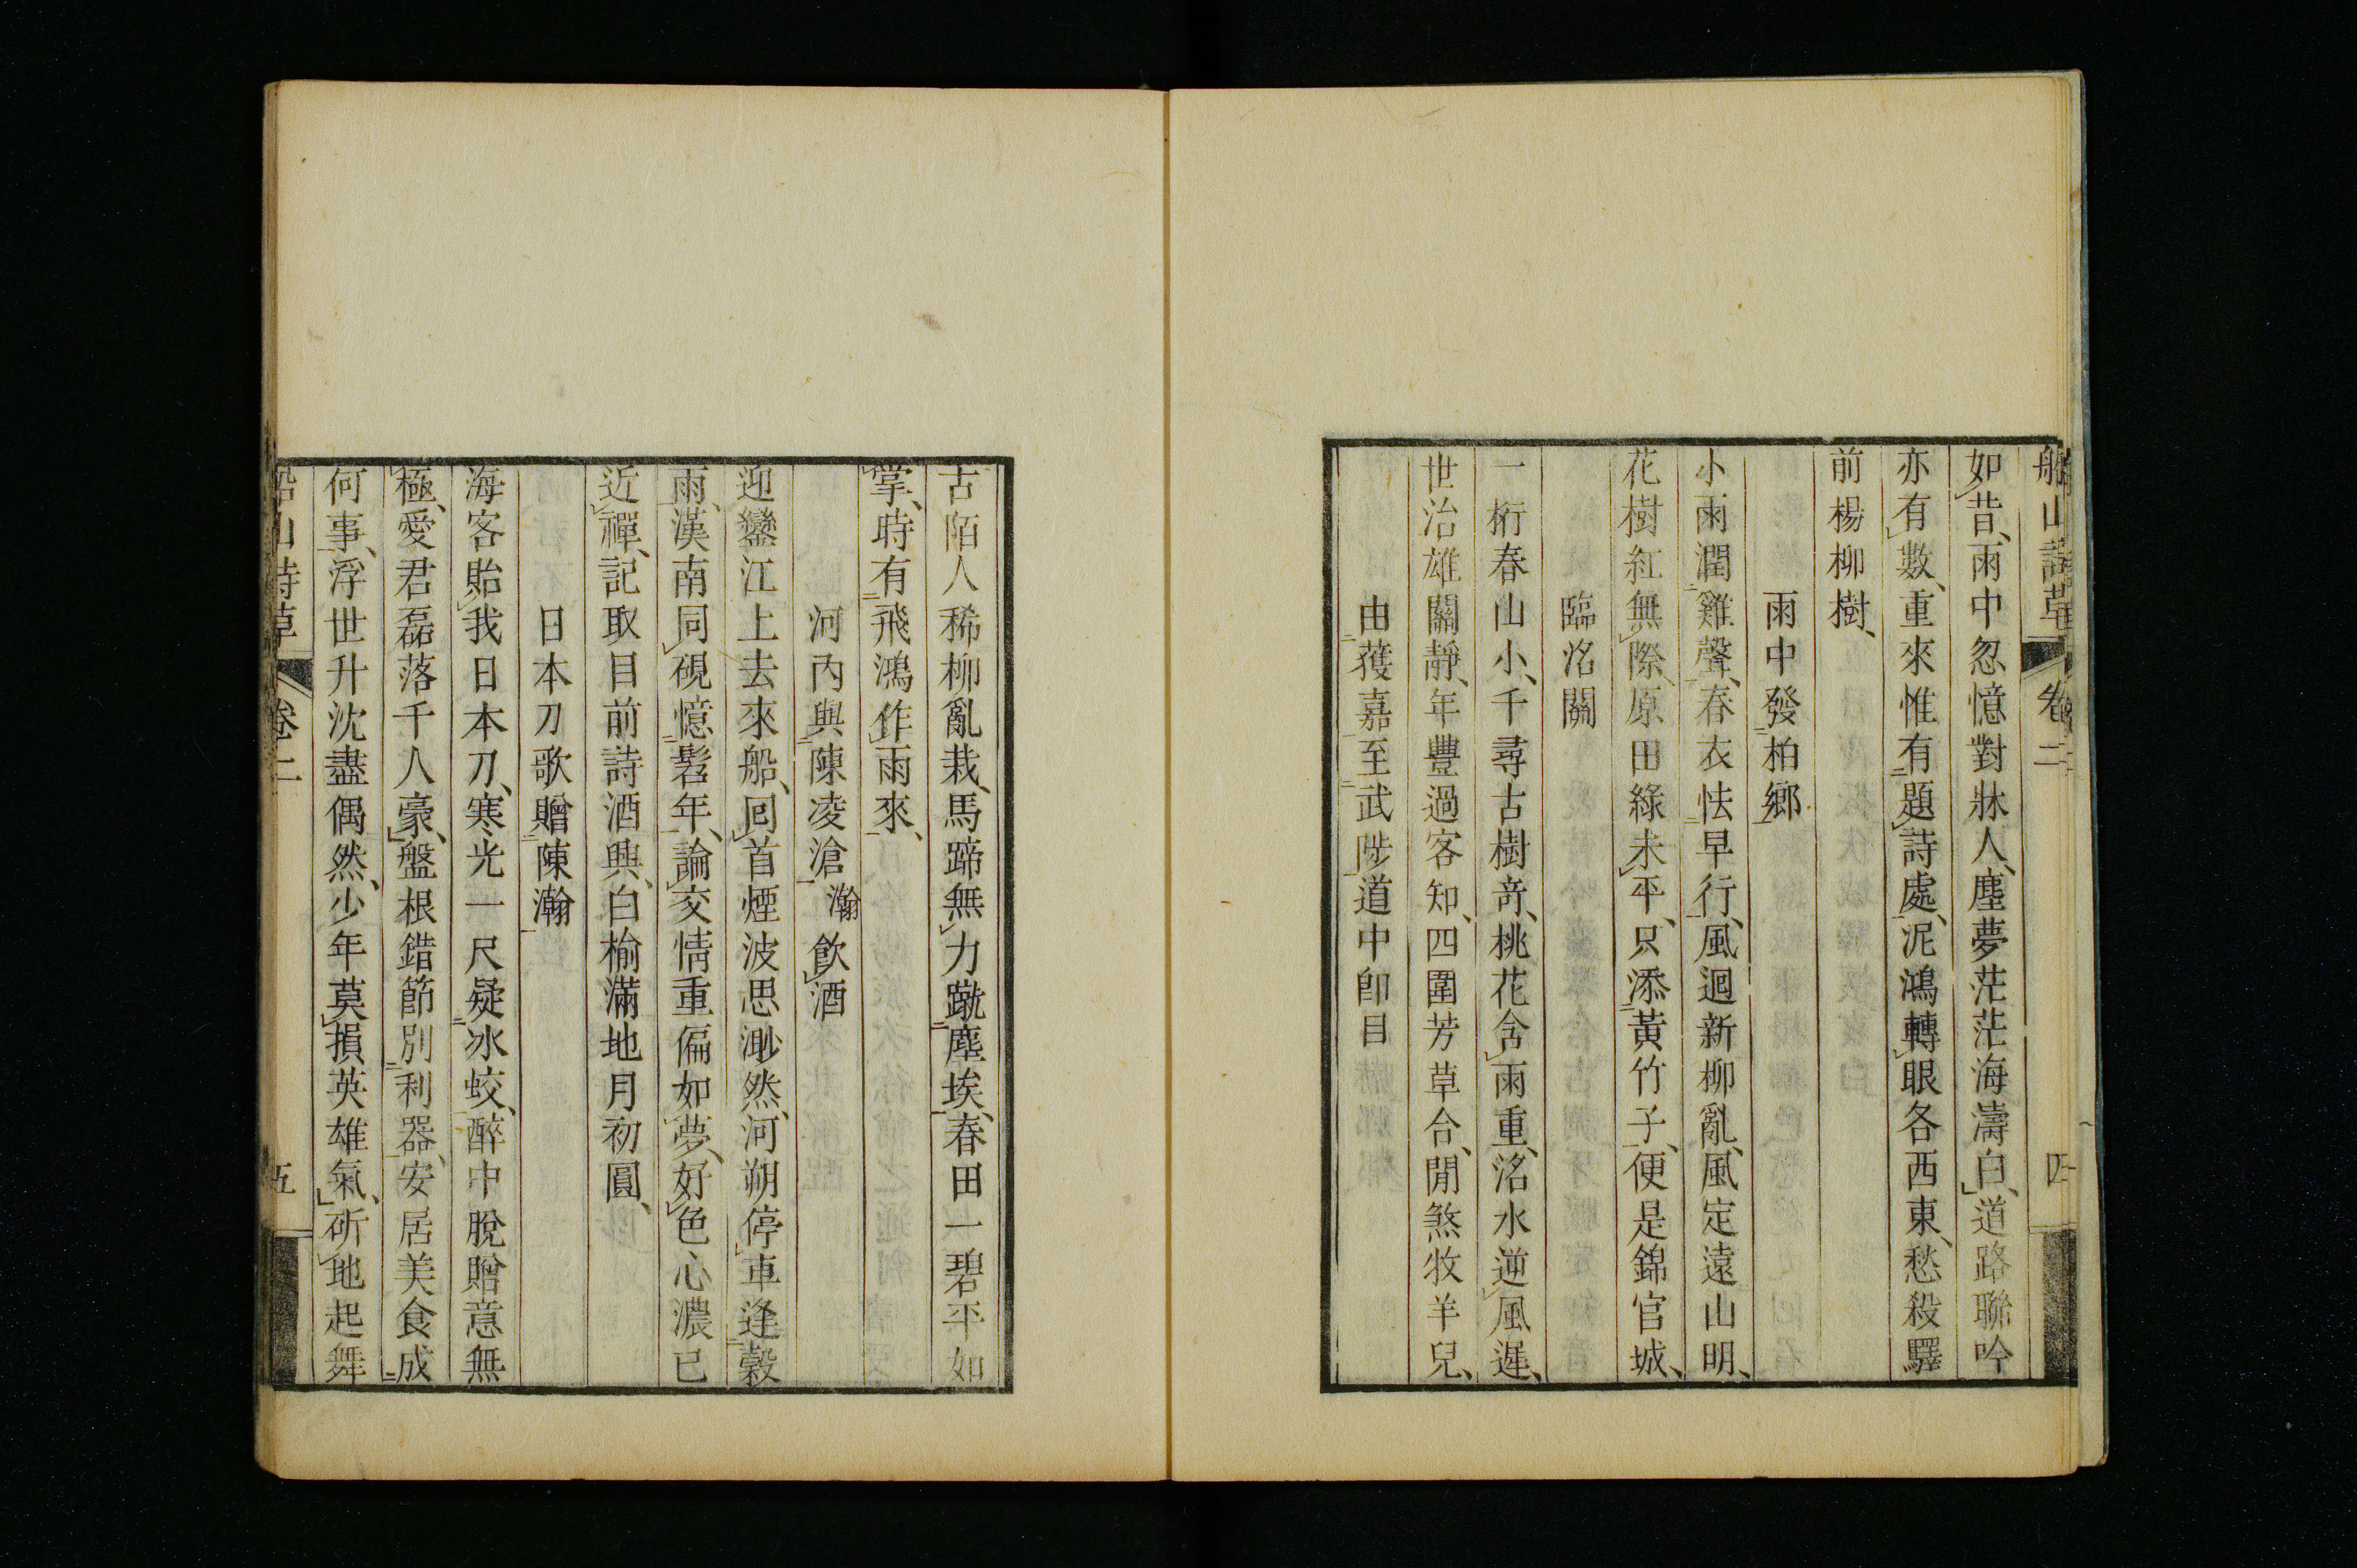 船山詩草 卷二 四
如昔、雨中忽憶對牀人、塵夢茫茫海濤白、道路聯吟
亦有數、重來惟有題詩處、泥鴻轉眼各西東、愁殺驛
前楊柳樹、
雨中發柏鄉
小雨潤雞聲、春衣怯早行、風迴新柳亂、風定遠山明、
花樹紅無際、原田綠未平、只添黃竹子、便是錦官城、
臨洺關
一桁春山小、千尋古樹奇、桃花含雨重、洺水逆風遲、
世治雄關靜、年豐過客知、四圍芳草合、閒煞牧羊兒、
由獲嘉至武陟道中卽目
古陌人稀柳亂栽、馬蹄無力蹴塵埃、春田一碧平如
掌、時有飛鴻作雨來、
河內與陳凌滄瀚飮酒
迎鑾江上去來船、回首煙波思渺然、河朔停車逢穀
雨、漢南同硯憶髫年、論交情重偏如夢、好色心濃已
近禪、記取目前詩酒興、白榆滿地月初圓、
日本刀歌贈陳瀚
海客貽我日本刀、寒光一尺疑冰蛟、醉中脫贈意無
極、愛君磊落千人豪、盤根錯節別利器、安居美食成
何事、浮世升沈盡偶然、少年莫損英雄氣、斫地起舞
船山詩草 卷二 五